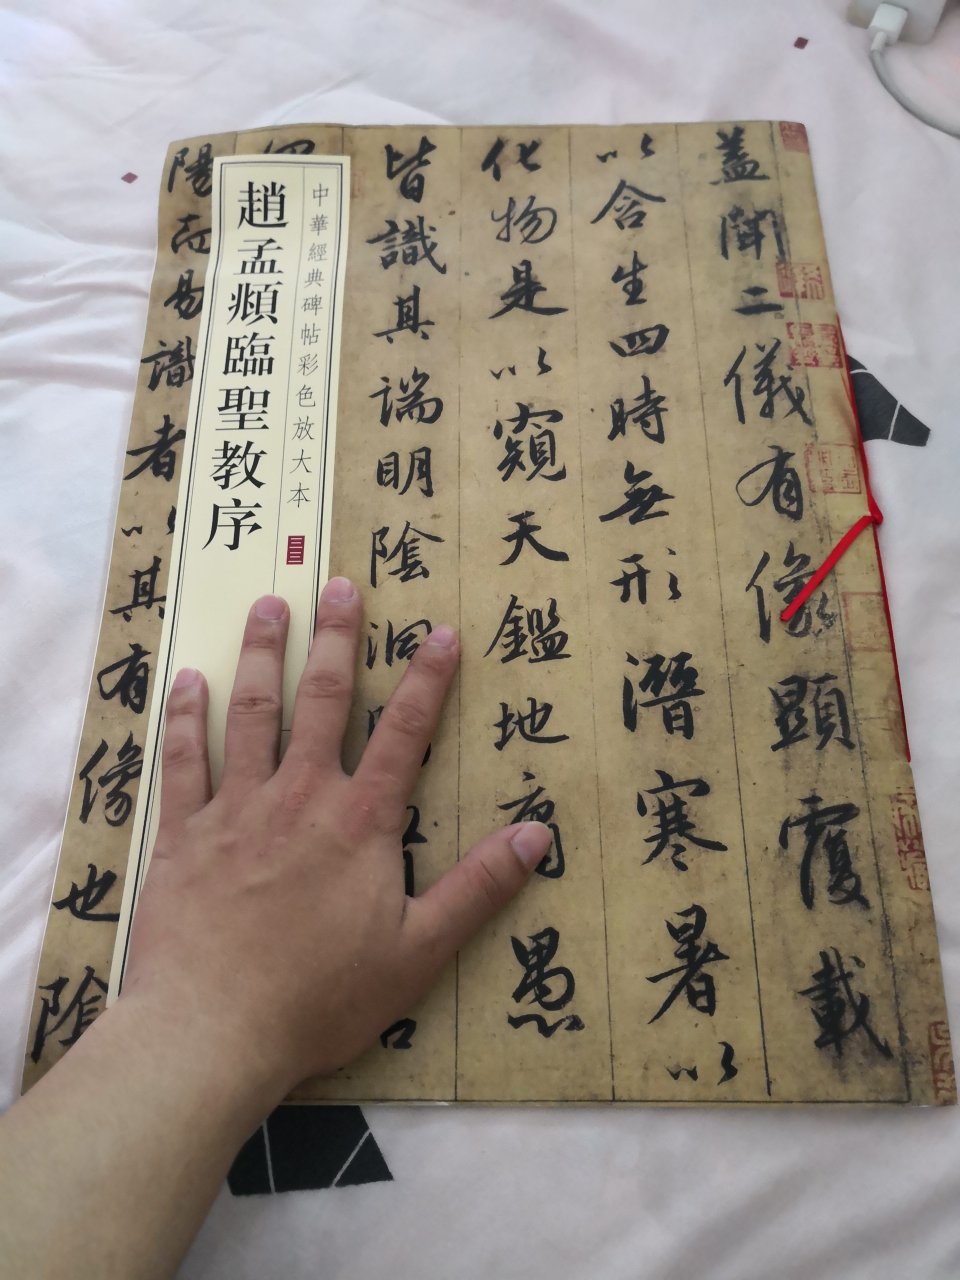 蓋聞二儀有像顯覆載
以含生四時無形潛寒暑以
化物是以窺天鑑地庸愚
皆識其端明陰洞
中華經典碑帖彩色放大本
趙孟頫臨聖教序
陽而易識者以其有像也陰